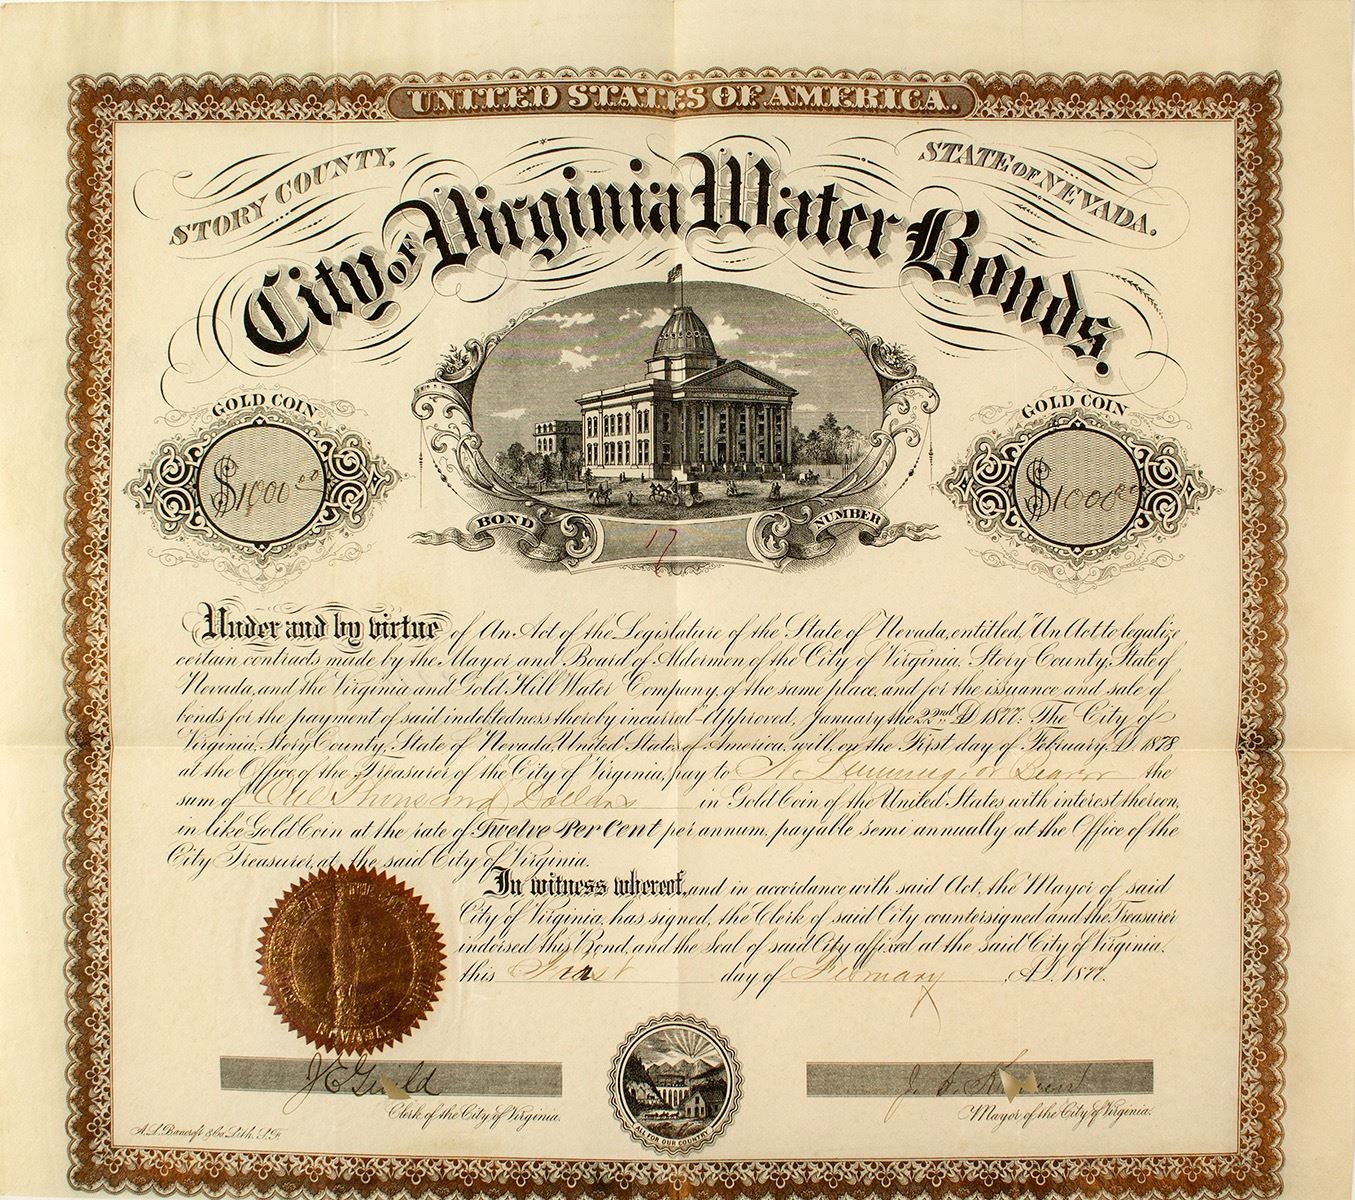 UNITED STATES OF AMERICA.
STORY COUNTY.
STATE OF NEVADA.
City of Virginia Water Bonds.
GOLD COIN
GOLD COIN
$1000 00
$1000 00
BOND NUMBER
17
Under and by virtue of An Act of the Legislature of the State of Nevada, entitled, "An Act to legalize
certain contracts made by the Mayor and Board of Aldermen of the City of Virginia, Story County, State of
Nevada, and the Virginia and Gold Hill Water Company, of the same place, and for the issuance and sale of
bonds for the payment of said indebtedness thereby incurred" Approved, January the 22nd D 1877: The City of
Virginia, Story County, State of Nevada, United States of America, will, on the First day of February, D. 1878
at the Office of the Treasurer of the City of Virginia, pay to N. or Bearer the
sum of One Thousand Dollars in Gold Coin of the United States with interest thereon,
in like Gold Coin at the rate of Twelve Per Cent per annum, payable semi annually at the Office of the
City Treasurer, at the said City of Virginia.
In witness whereof, and in accordance with said Act, the Mayor of said
City of Virginia, has signed, the Clerk of said City countersigned and the Treasurer
indorsed this Bond, and the Seal of said City affixed, at the said City of Virginia,
this First day of February, A.D. 1877.
NEVADA
J E Guild
Clerk of the City of Virginia.
ALL FOR OUR COUNTRY
Mayor of the City of Virginia.
A. L. Bancroft & Co. Lith. S. F.